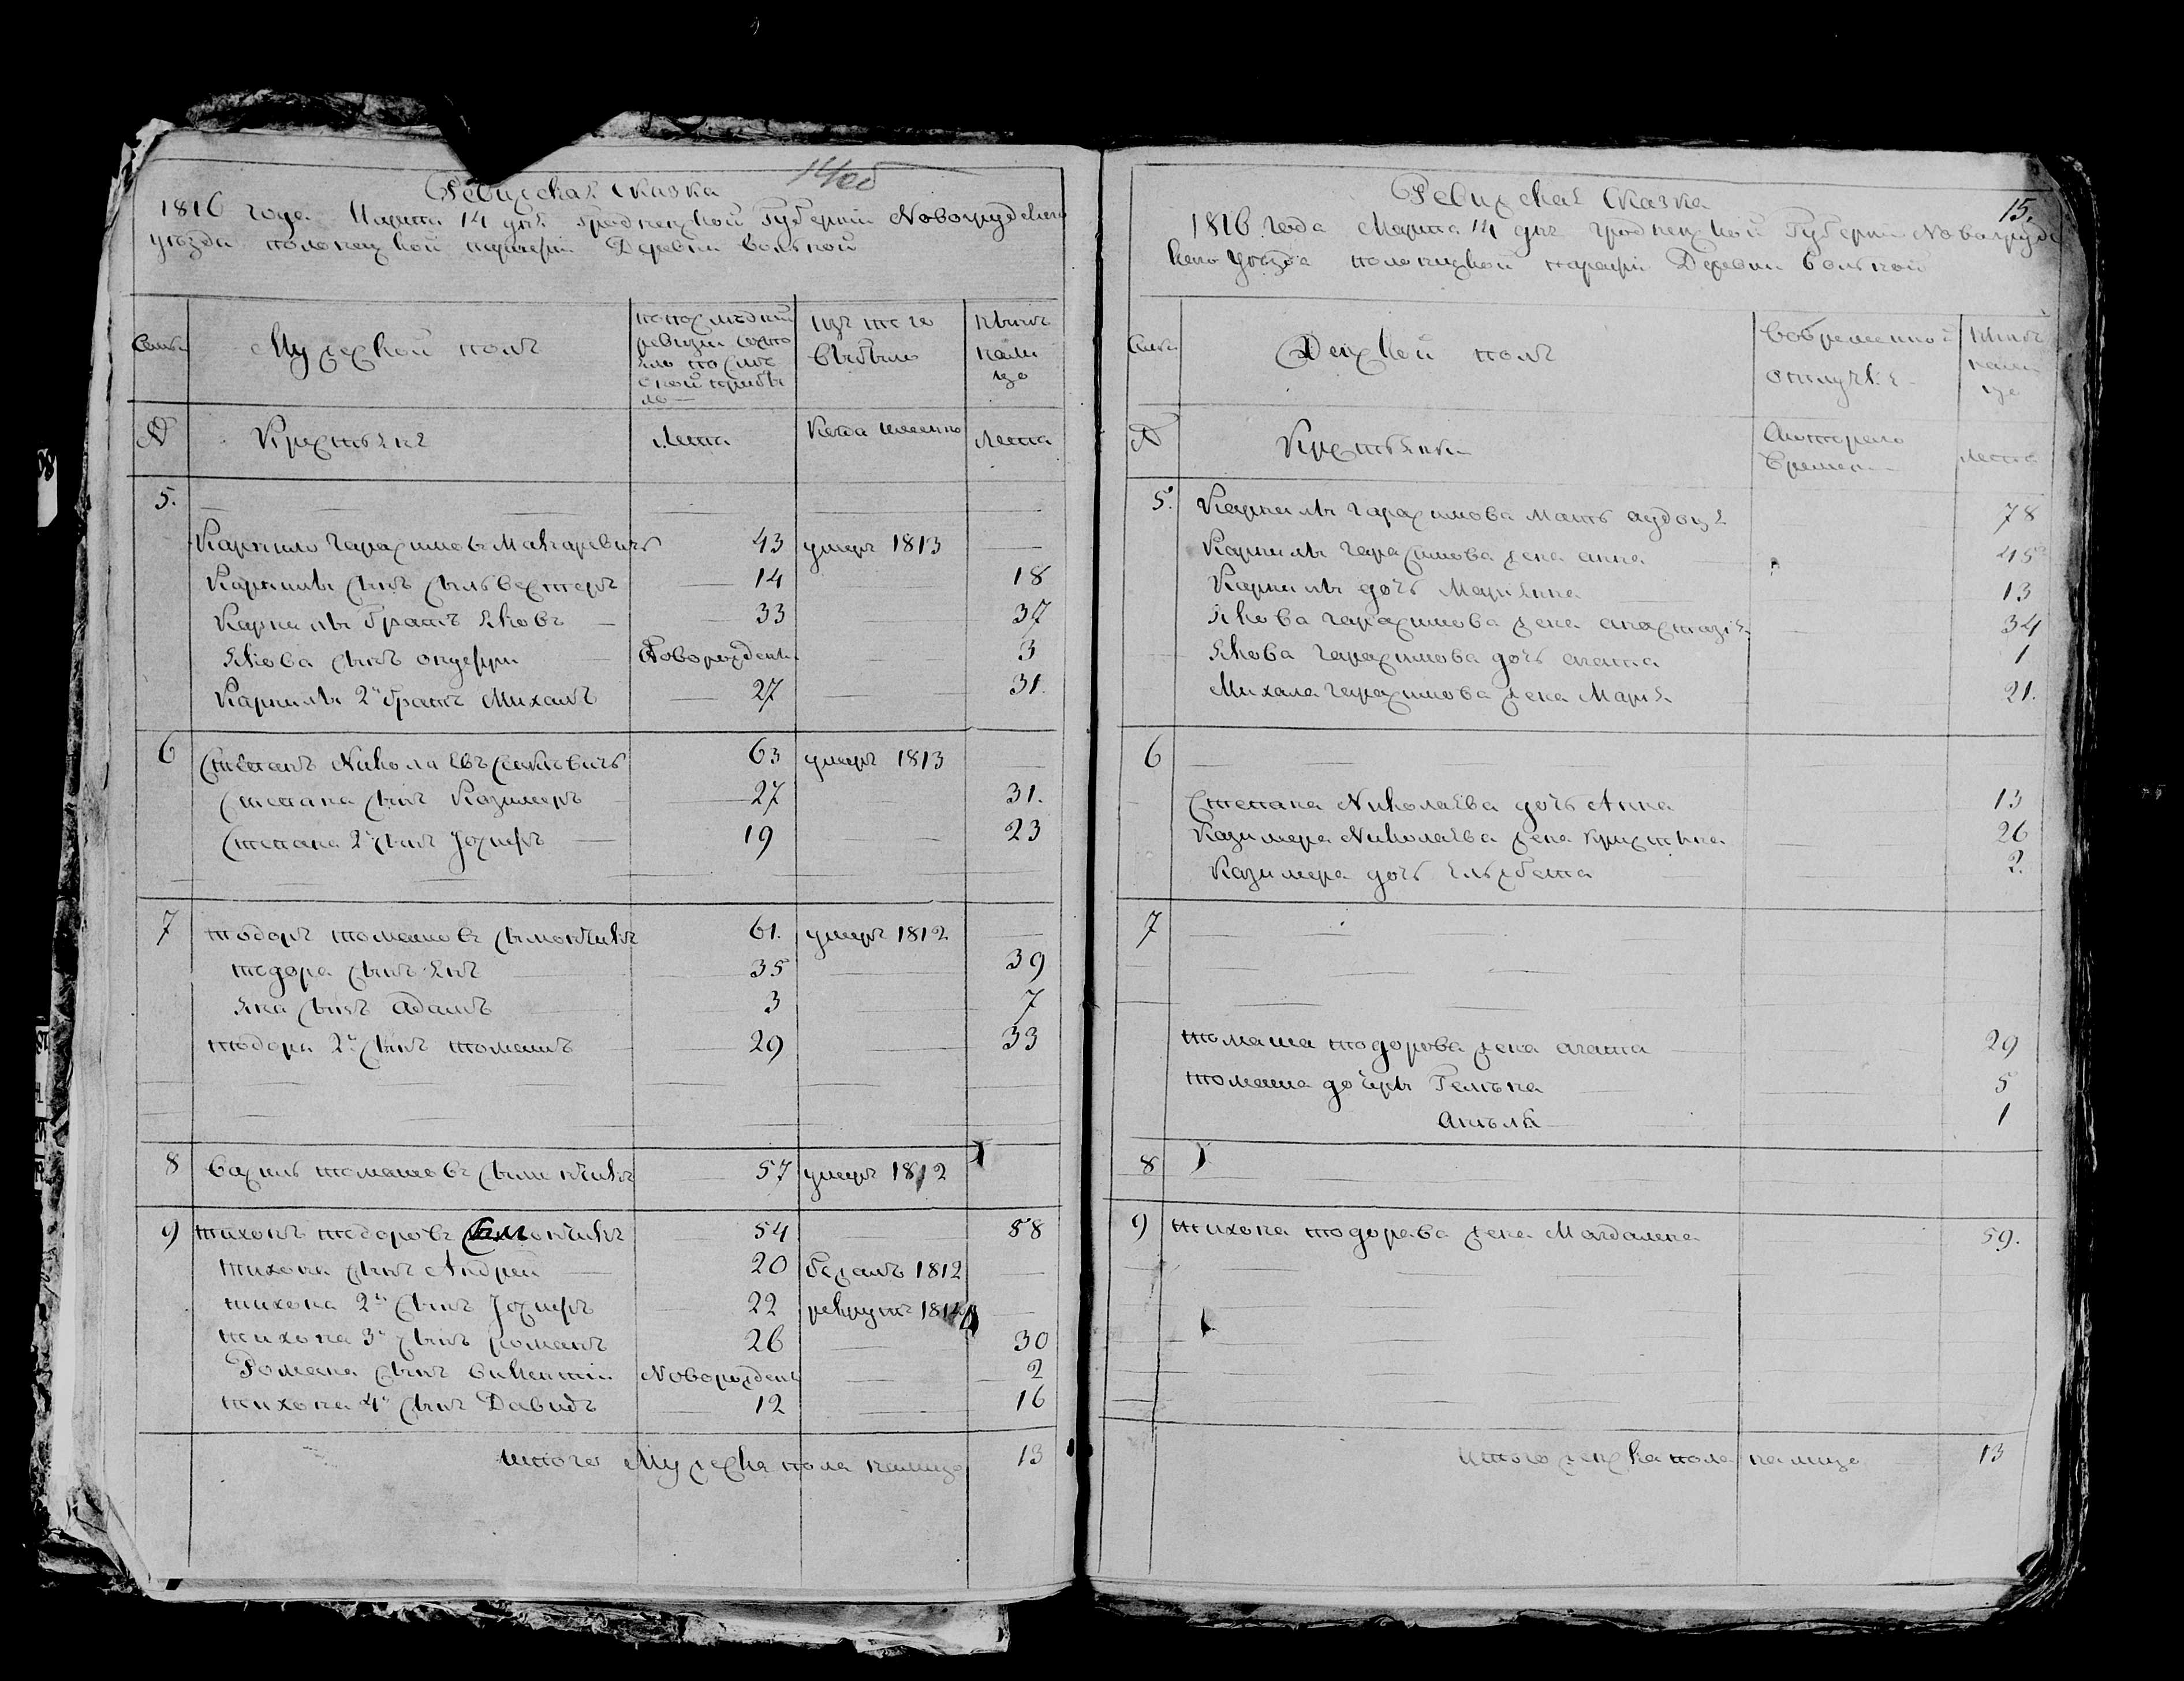 14об
Ревизская Сказка
1816 года Марта 14 дня Гродненской Губернии Новогрудского
уезда полонецкой парафии Деревни вольной
Семьи
Мужеской полъ
по последней ревизии состояло и после оной прибыло
изъ того выбыло
ныне налицо
№
Крестьяне
Лета
Когда именно
Лета
5.
Карпило Гарасимовъ Макаревичъ 43 умеръ 1813
Карпилы сынъ сыльвестеръ 14 18
Карпилы братъ яковъ 33 37
якова сынъ ондефри Новорожденъ 3
Карпилы 2й братъ Михалъ 27 31.
6 Степанъ Николаевъ 63 умеръ 1813
Степана сынъ Казимеръ 27 31.
Степана 2й сынъ Jозифъ 19 23
7 тодоръ томашовъ сымончикъ 61. умеръ 1812
тодора сынъ янъ 35 39
яна сынъ адамъ 3 7
тодора 2й сынъ томашъ 29 33
8 василь томашовъ сымончикъ 57 умеръ 1812
9 тихонъ тодоровъ сымончикъ 54 58
тихона сынъ Андрей 20 бежалъ 1812
тихона 2й сынъ Jозифъ 22 рекрутъ 1814
тихона 3й сынъ романъ 26 30
Романа сынъ викентий Новорожденъ 2
тихона 4й сынъ Давидъ 12 16
Итого Мужеска пола налицо 13
15.
Ревизская Сказка
1816 года Марта 14 дня гродненской Губернии Новогруд
ского уезда полонецкой парафии Деревни вольной
Семьи
Женской полъ
Во временной отлучке
Ныне налицо
№
Крестьянки
С которого времени
лета
5. Карпилы гарасимова мать аудоця 78
Карпилы гарасимова жена анна 45
Карпилы дочь Марияна 13
якова гарасимова жена анастазия 34
якова гарасимова дочь агата 1
Михала гарасимова жена Мария 21.
6
Степана Николаева дочь Анна 13
Казимера Николаева жена крыстына 26
Казимера дочь ельжбета 2.
7
томаша тодорова жена агата 29
томаша дочеры Гелена 5
анеля 1
8
9 тихона тодорова жена Магдалена 59.
Итого женска пола налицо 13